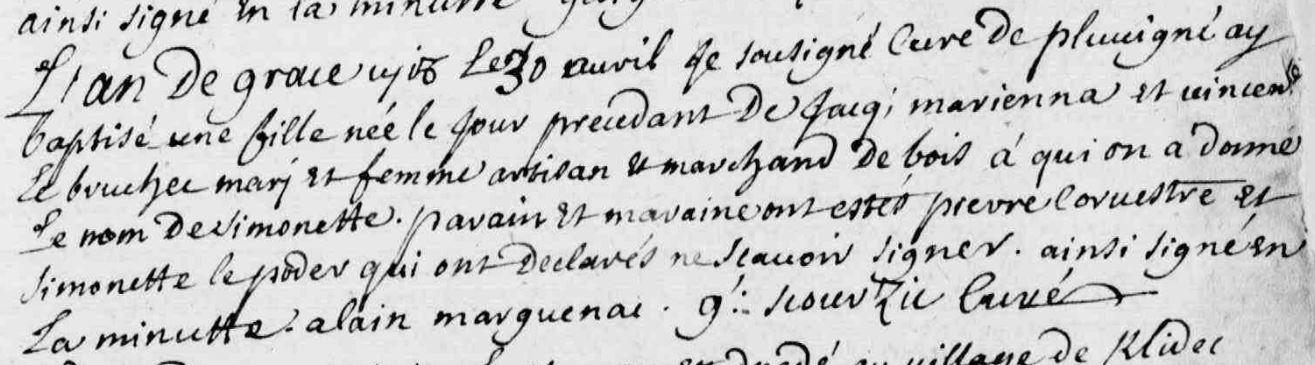 ainsi signé en la minutte
L'an De grace Le 30 auril Je sousigné Curé De pluuigné ay
baptisé une fille née le Jour precedant De Jacq; marienna et vincente
Le bruchec marj et femme artisan et marchand De bois á qui on a donné
Le nom De simonette. parain et maraine ont estés pierre Coruestre et
simonette le poder qui ont Declarés ne sçauoir signer. ainsi signé en
La minutte. alain marguenac. g: Curé
village de Klidec